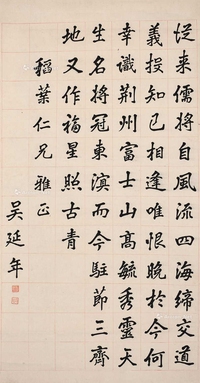 從来儒将自風流四海締交道
義投知己相逢唯恨晚於今何
幸識荆州富士山髙毓秀靈天
生名将冠東濵而今駐節三齊
地又作福星照古青
稻葉仁兄雅正
吴延年